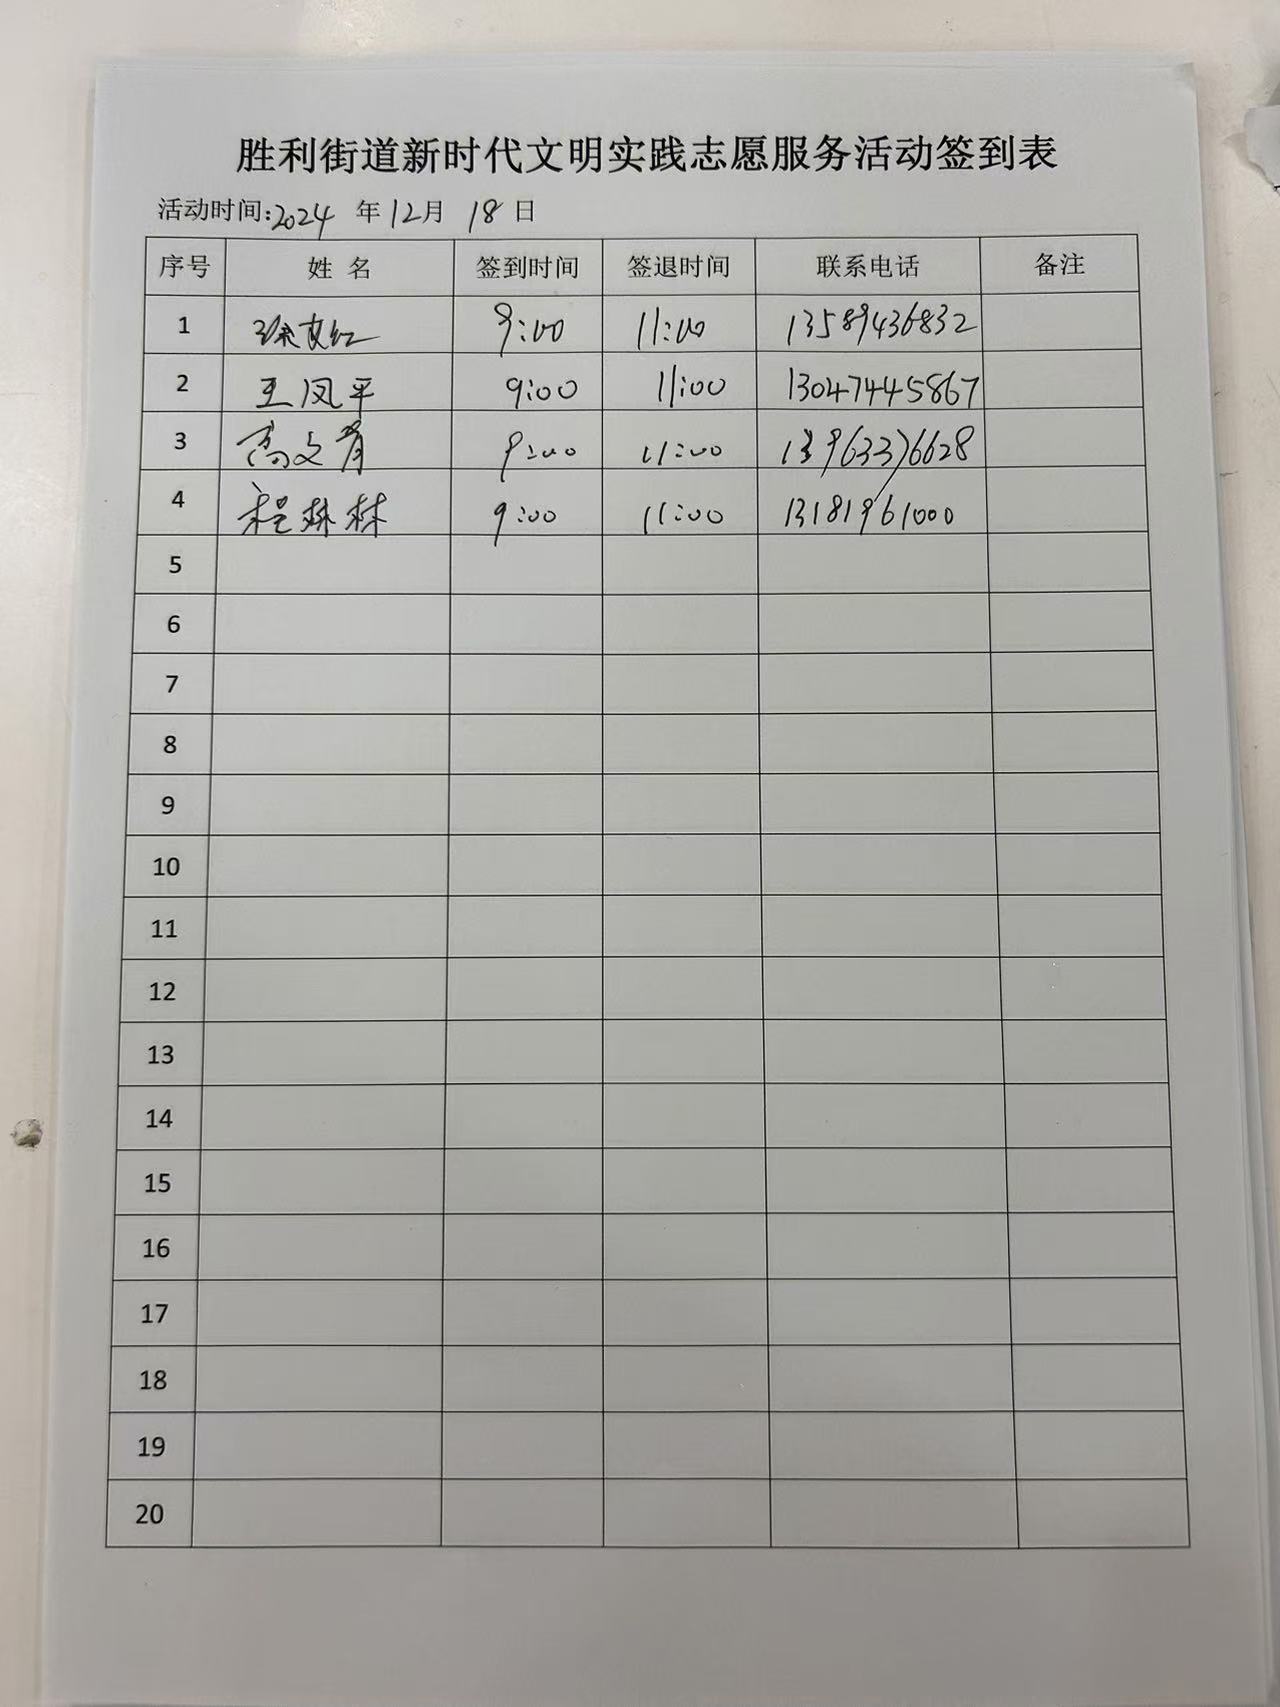 胜利街道新时代文明实践志愿服务活动签到表
活动时间:2024 年 12月 18 日
序号 姓 名 签到时间 签退时间 联系电话 备注
1 9:00 11:00 13589436832
2 王凤平 9:00 11:00 13047445867
3 高文青 9:00 11:00 13963376628
4 程林林 9:00 11:00 13181961000
5
6
7
8
9
10
11
12
13
14
15
16
17
18
19
20